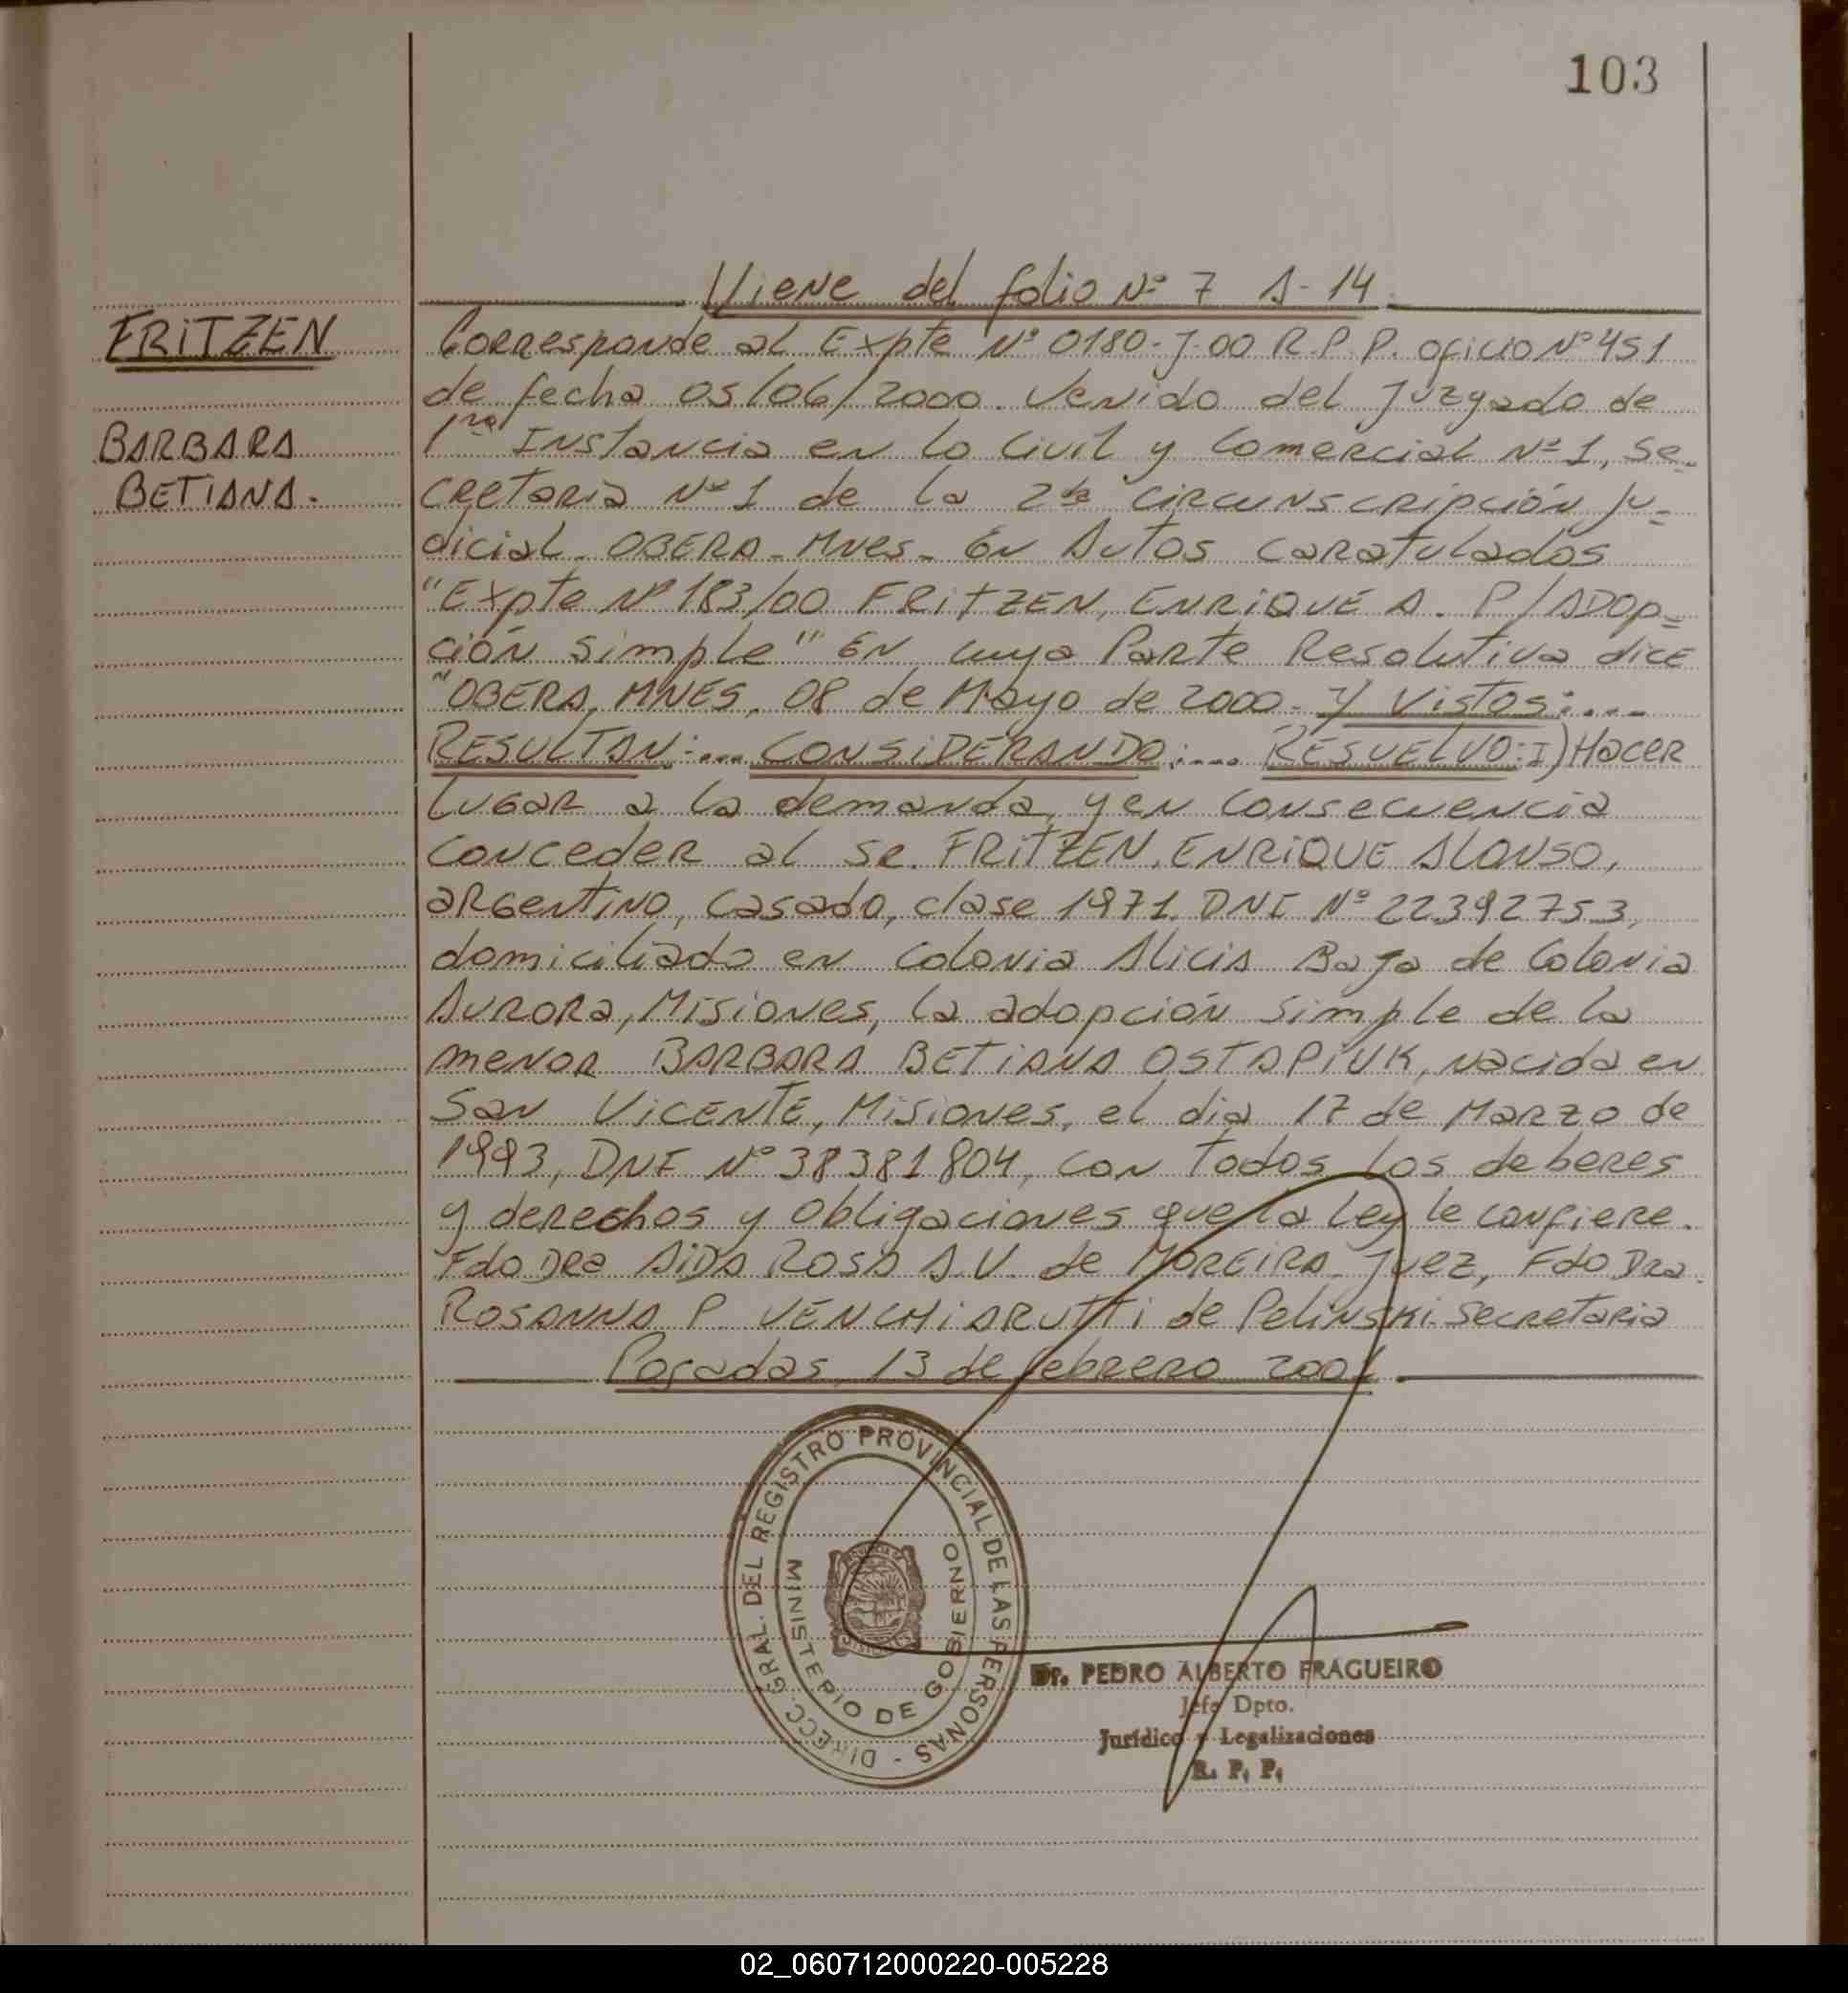 103
Viene del folio Nº 7 A-14
FRITZEN
BARBARA
BETIANA.
Corresponde al Expte Nº 0180-J-00 R.P.P. oficio Nº 451
de fecha 05/06/2000. Venido del Juzgado de
1ra Instancia en lo Civil y Comercial Nº 1, Se-
cretaria Nº 1 de la 2da circunscripción Ju-
dicial. OBERA-Mnes- En Autos caratulados
"Expte Nº 183/00 FRITZEN, ENRIQUE A. P/ADOP-
ción simple" En cuya Parte Resolutiva dice
"OBERA, MNES, 08 de Mayo de 2000. Y Vistos:....
RESULTAN:... CONSIDERANDO:.... RESUELVO: I) Hacer
Lugar a la demanda, y en consecuencia
Conceder al Sr. FRITZEN, ENRIQUE ALONSO,
argentino, casado, clase 1971. DNI Nº 22392753,
domiciliado en Colonia Alicia Baja de Colonia
Aurora, Misiones, la adopción simple de la
menor BARBARA BETIANA OSTAPIUK, nacida en
San Vicente, Misiones, el dia 17 de Marzo de
1993, DNI Nº 38381804, con Todos los deberes
y derechos y obligaciones que la Ley le confiere.
Fdo Dra AIDA ROSA A.V. de MOREIRA Juez, Fdo Dra.
ROSANNA P. VENCHIARUTTI de Pelinski. Secretaria
Posadas, 13 de febrero 2001
DIRECC. GRAL. DEL REGISTRO PROVINCIAL DE LAS PERSONAS -
MINISTERIO DE GOBIERNO
Dr. PEDRO ALBERTO FRAGUEIRO
Jefe Dpto.
Jurídico y Legalizaciones
R. P. P.
02_060712000220-005228